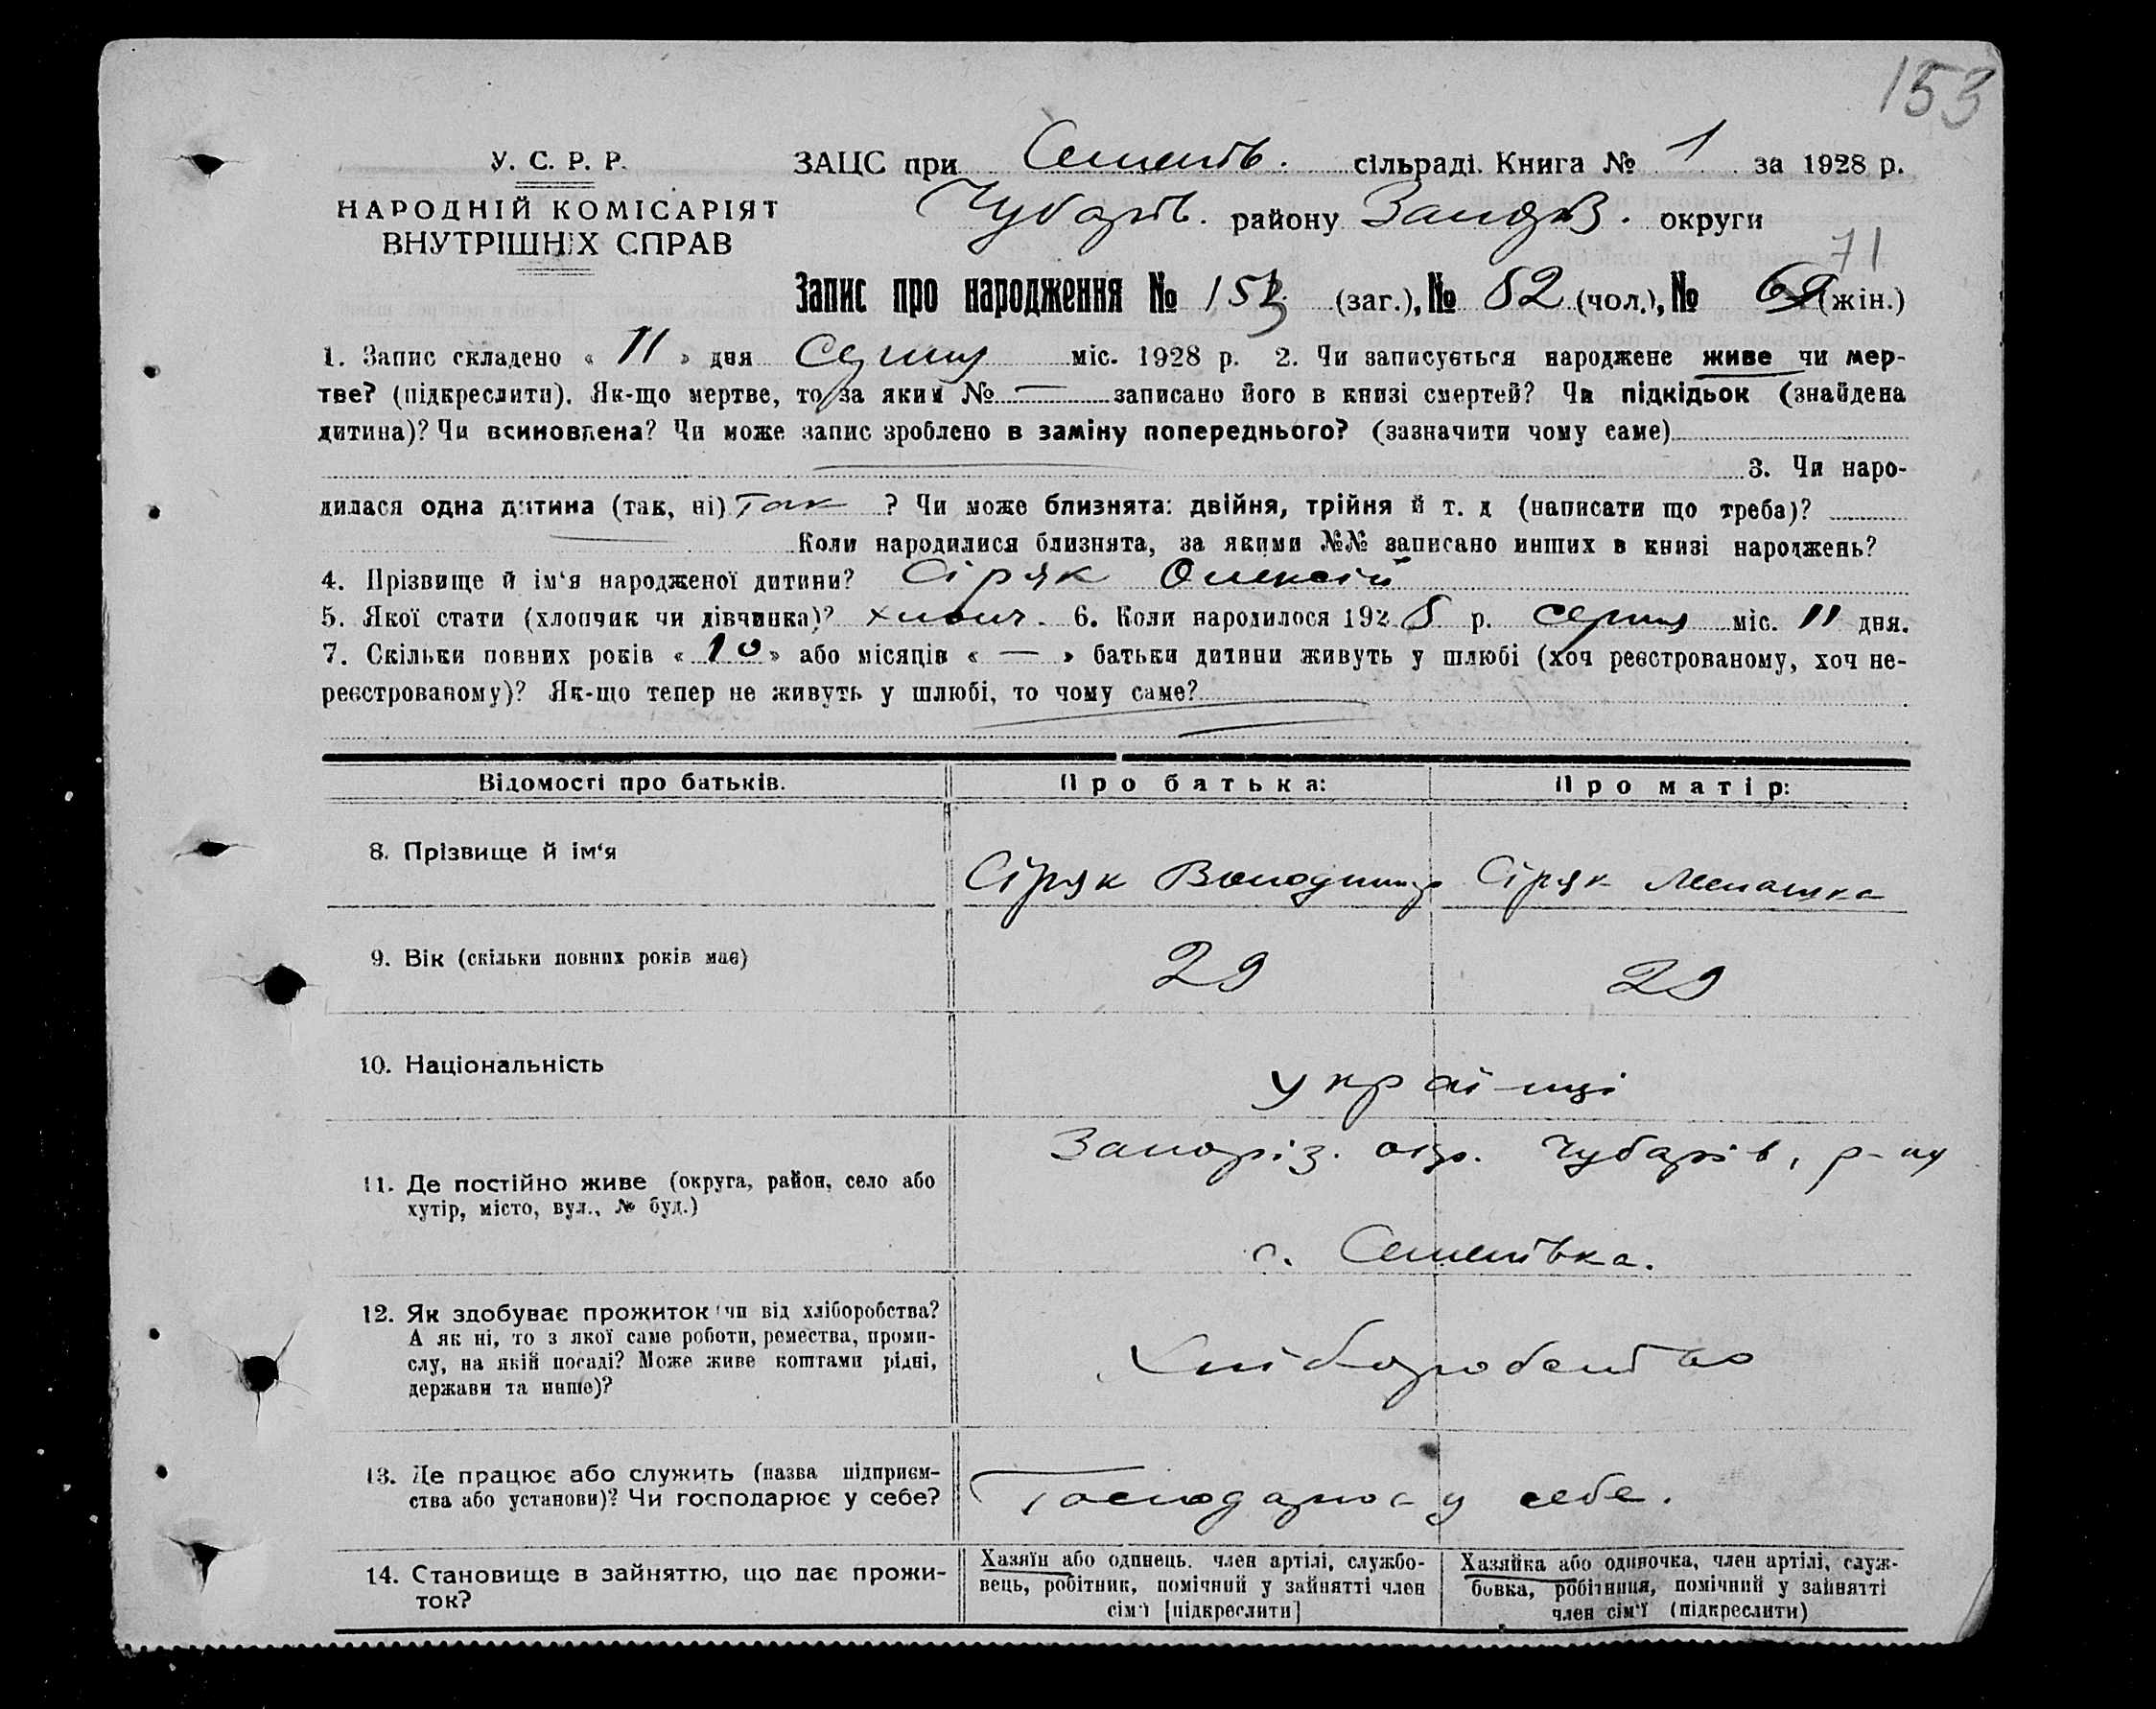 153
У. С. Р. Р.
НАРОДНІЙ КОМІСАРІЯТ
ВНУТРІШНІХ СПРАВ
ЗАЦС при Семенів. сільраді. Книга № 1 за 1928 р.
Чубарів. району округи
71
Запис про народження № 153 (заг.), № 82 (чол.), № (жін.)
1. Запис складено « 11 » дня Серпня міс. 1928 р. 2. Чи записується народжене живе чи мер-
тве? (підкреслити). Як-що мертве, то за яким № — записано його в книзі смертей? Чи підкідьок (знайдена
дитина)? Чи всиновлена? Чи може запис зроблено в заміну попереднього? (зазначити чому саме)
3. Чи наро-
дилася одна дитина (так, ні) Так ? Чи може близнята: двійня, трійня й т. д (написати що треба)?
Коли народилися близнята, за якими №№ записано инших в книзі народжень?
4. Прізвище й ім‘я народженої дитини? Сіряк Олексій
5. Якої стати (хлопчик чи дівчинка)? хлопч. 6. Коли народилося 1928 р. серпня міс. 11 дня.
7. Скільки повних років « 10 » або місяців « — » батьки дитини живуть у шлюбі (хоч реєстрованому, хоч не-
реєстрованому)? Як-що тепер не живуть у шлюбі, то чому саме?
Відомості про батьків. Про батька: Про матір:
8. Прізвище й ім‘я Сіряк Володимир Сіряк Мелашка
9. Вік (скільки повних років має) 29 29
10. Національність українці
11. Де постійно живе (округа, район, село або
хутір, місто, вул., № буд.)
Запоріз. окр. Чубарів, р-ну
с. Семенівка.
12. Як здобуває прожиток (чи від хліборобства?
А як ні, то з якої саме роботи, ремества, проми-
слу, на якій посаді? Може живе коштами рідні,
держави та инше)?
Хліборобство
13. Де працює або служить (назва підприєм-
ства або установи)? Чи господарює у себе?
Господарює у себе.
14. Становище в зайняттю, що дає прожи-
ток?
Хазяїн або одинець. член артілі, службо-
вець, робітник, помічний у зайнятті член
сім‘ї [підкреслити]
Хазяйка або одиночка, член артілі, служ-
бовка, робітниця, помічний у зайнятті
член сім‘ї (підкреслити)